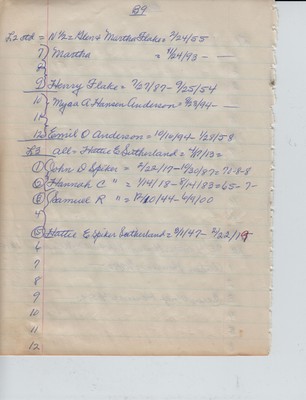 89
L2 sth = N 1/2 = Glen & Martha Flake = 2/24/55
7) Martha = 11/24/93 -
8)
9) Henry Flake = 7/27/87 - 9/25/54
10) Myra A Hansen Anderson = 8/23/94 -
11
12 Emil O Anderson = 10/10/94 - 1/28/58
L3 All = Hattie E Sutherland = 4/17/13 =
1) John D Spiker = 7/22/17 - 12/30/87 = 71-8-8
2) Hannah C " = 7/14/18 - 8/14/83 = 65-7-
3) Samuel R " = 8/10/44 - 6/9/00
4
5) Hattie E Spiker Sutherland = 8/1/47 - 2/22/19
6
7
8
9
10
11
12